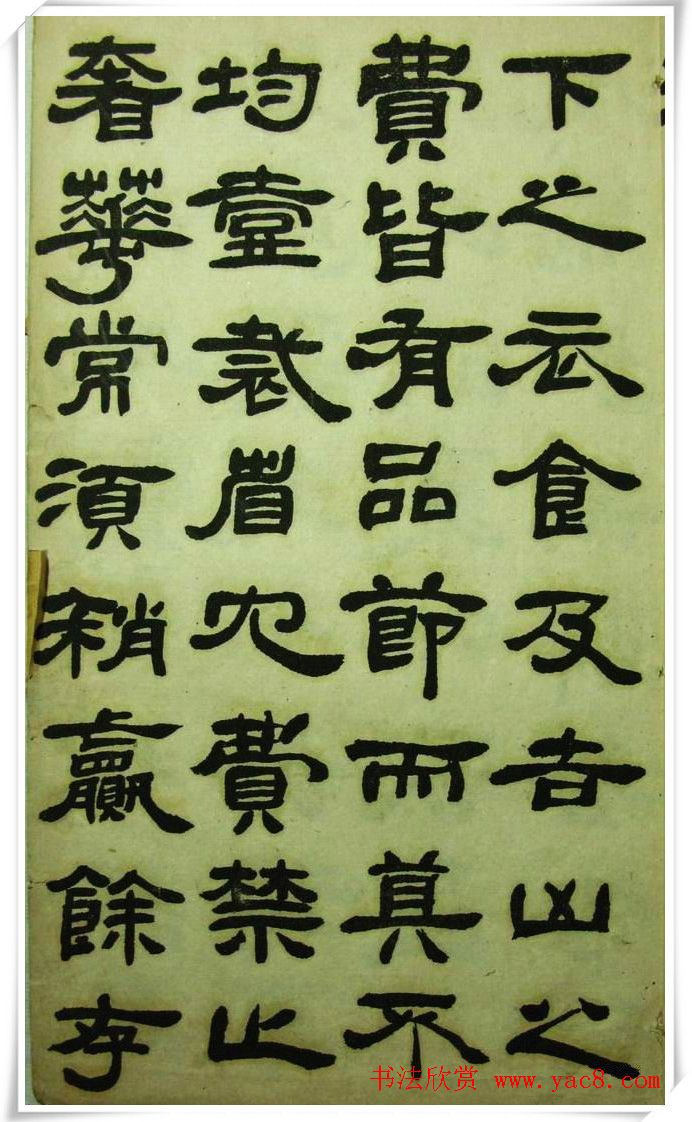 下之衣食及吉凶之
費皆有品節而莫不
均壹裁省冗費禁止
奢華常須稍贏餘存
书法欣赏 www.yac8.com